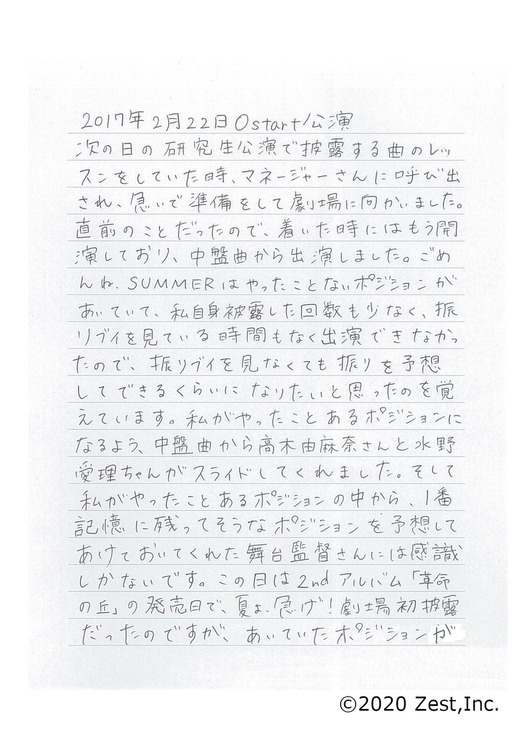 2017年2月22日 0start公演
次の日の研究生公演で披露する曲のレッ
スンをしていた時、マネージャーさんに呼び出
され、急いで準備をして劇場に向かいました。
直前のことだったので、着いた時にはもう開
演しており、中盤曲から出演しました。ごめ
んね、SUMMERはやったことないポジションが
あいていて、私自身披露した回数も少なく、振
りブイを見ている時間もなく出演できなかっ
たので、振りブイを見なくても振りを予想
してできるくらいになりたいと思ったのを覚
えています。私がやったことあるポジションに
なるよう、中盤曲から高木由麻奈さんと水野
愛理ちゃんがスライドしてくれました。そして
私がやったことあるポジションの中から、1番
記憶に残ってそうなポジションを予想して
あけておいてくれた舞台監督さんには感識
しかないです。この日は2ndアルバム「革命
の丘」の発売日で、夏よ、急げ!劇場初披露
だったのですが、あいていたポジションが
©2020 Zest,Inc.